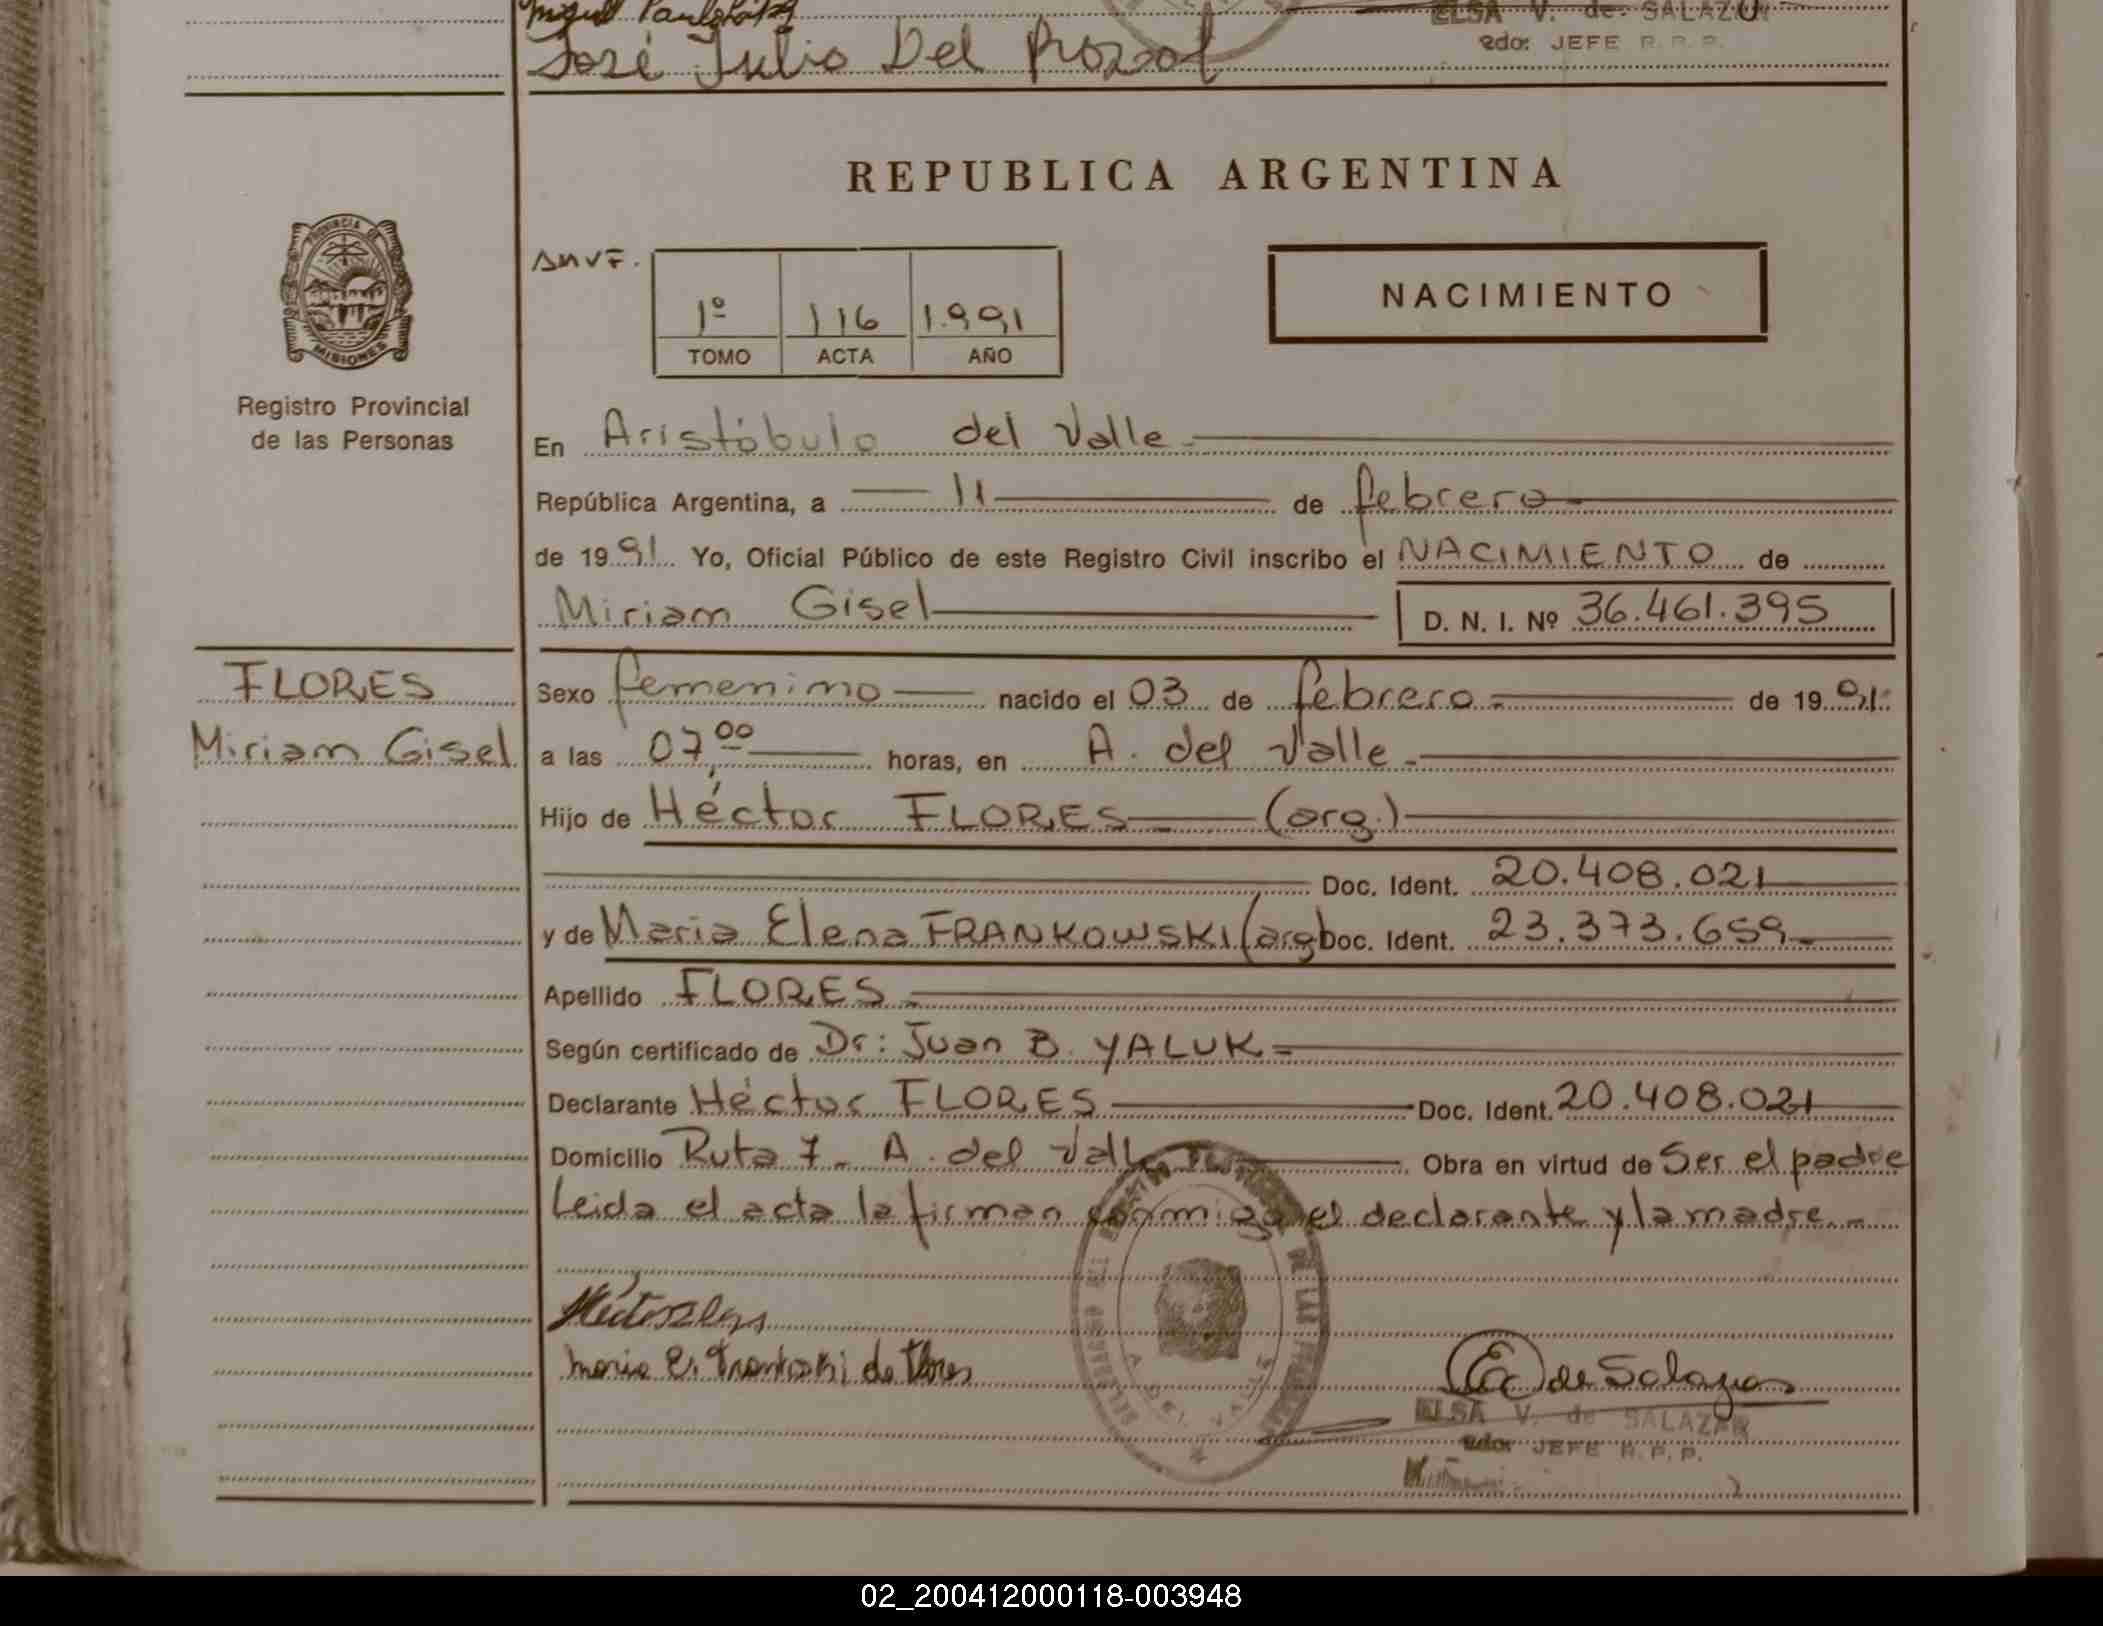 José Julio Del
ELSA V. de SALAZAR
JEFE R. R. P.
REPUBLICA ARGENTINA
PROVINCIA DE
MISIONES
Registro Provincial
de las Personas
1º 116 1.991
TOMO ACTA AÑO
NACIMIENTO
En Aristóbulo del Valle
República Argentina, a 11 de febrero
de 1991 Yo, Oficial Público de este Registro Civil inscribo el NACIMIENTO de
Miriam Gisel D. N. I. Nº 36.461.395
FLORES
Miriam Gisel
Sexo femenino nacido el 03 de febrero de 1991.
a las 07,00 horas, en A. del Valle
Hijo de Héctor FLORES (arg.)
Doc. Ident. 20.408.021
y de Maria Elena FRANKOWSKI (arg) Doc. Ident. 23.373.659
Apellido FLORES
Según certificado de Dr: Juan B. YALUK
Declarante Héctor FLORES Doc. Ident. 20.408.021
Domicilio Ruta 7 - A. del Valle Obra en virtud de Ser el padre
Leida el acta la firman conmigo el declarante y la madre.
Maria E. de Flores
E de Salazar
ELSA V. de SALAZAR
JEFE R. P. P.
02_200412000118-003948